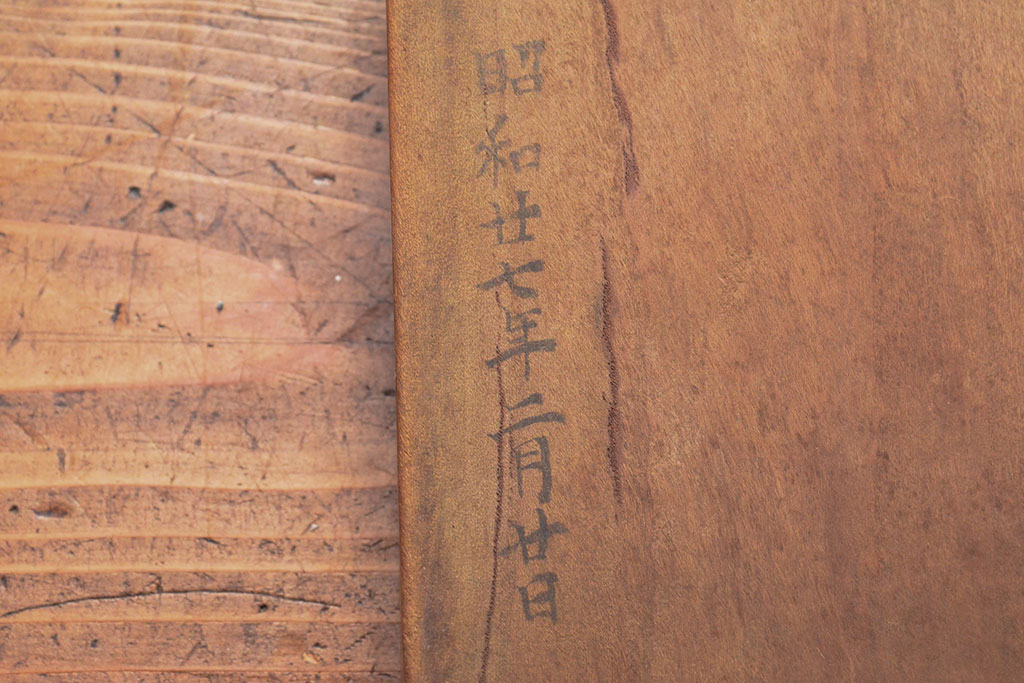 昭和廿七年二月廿日